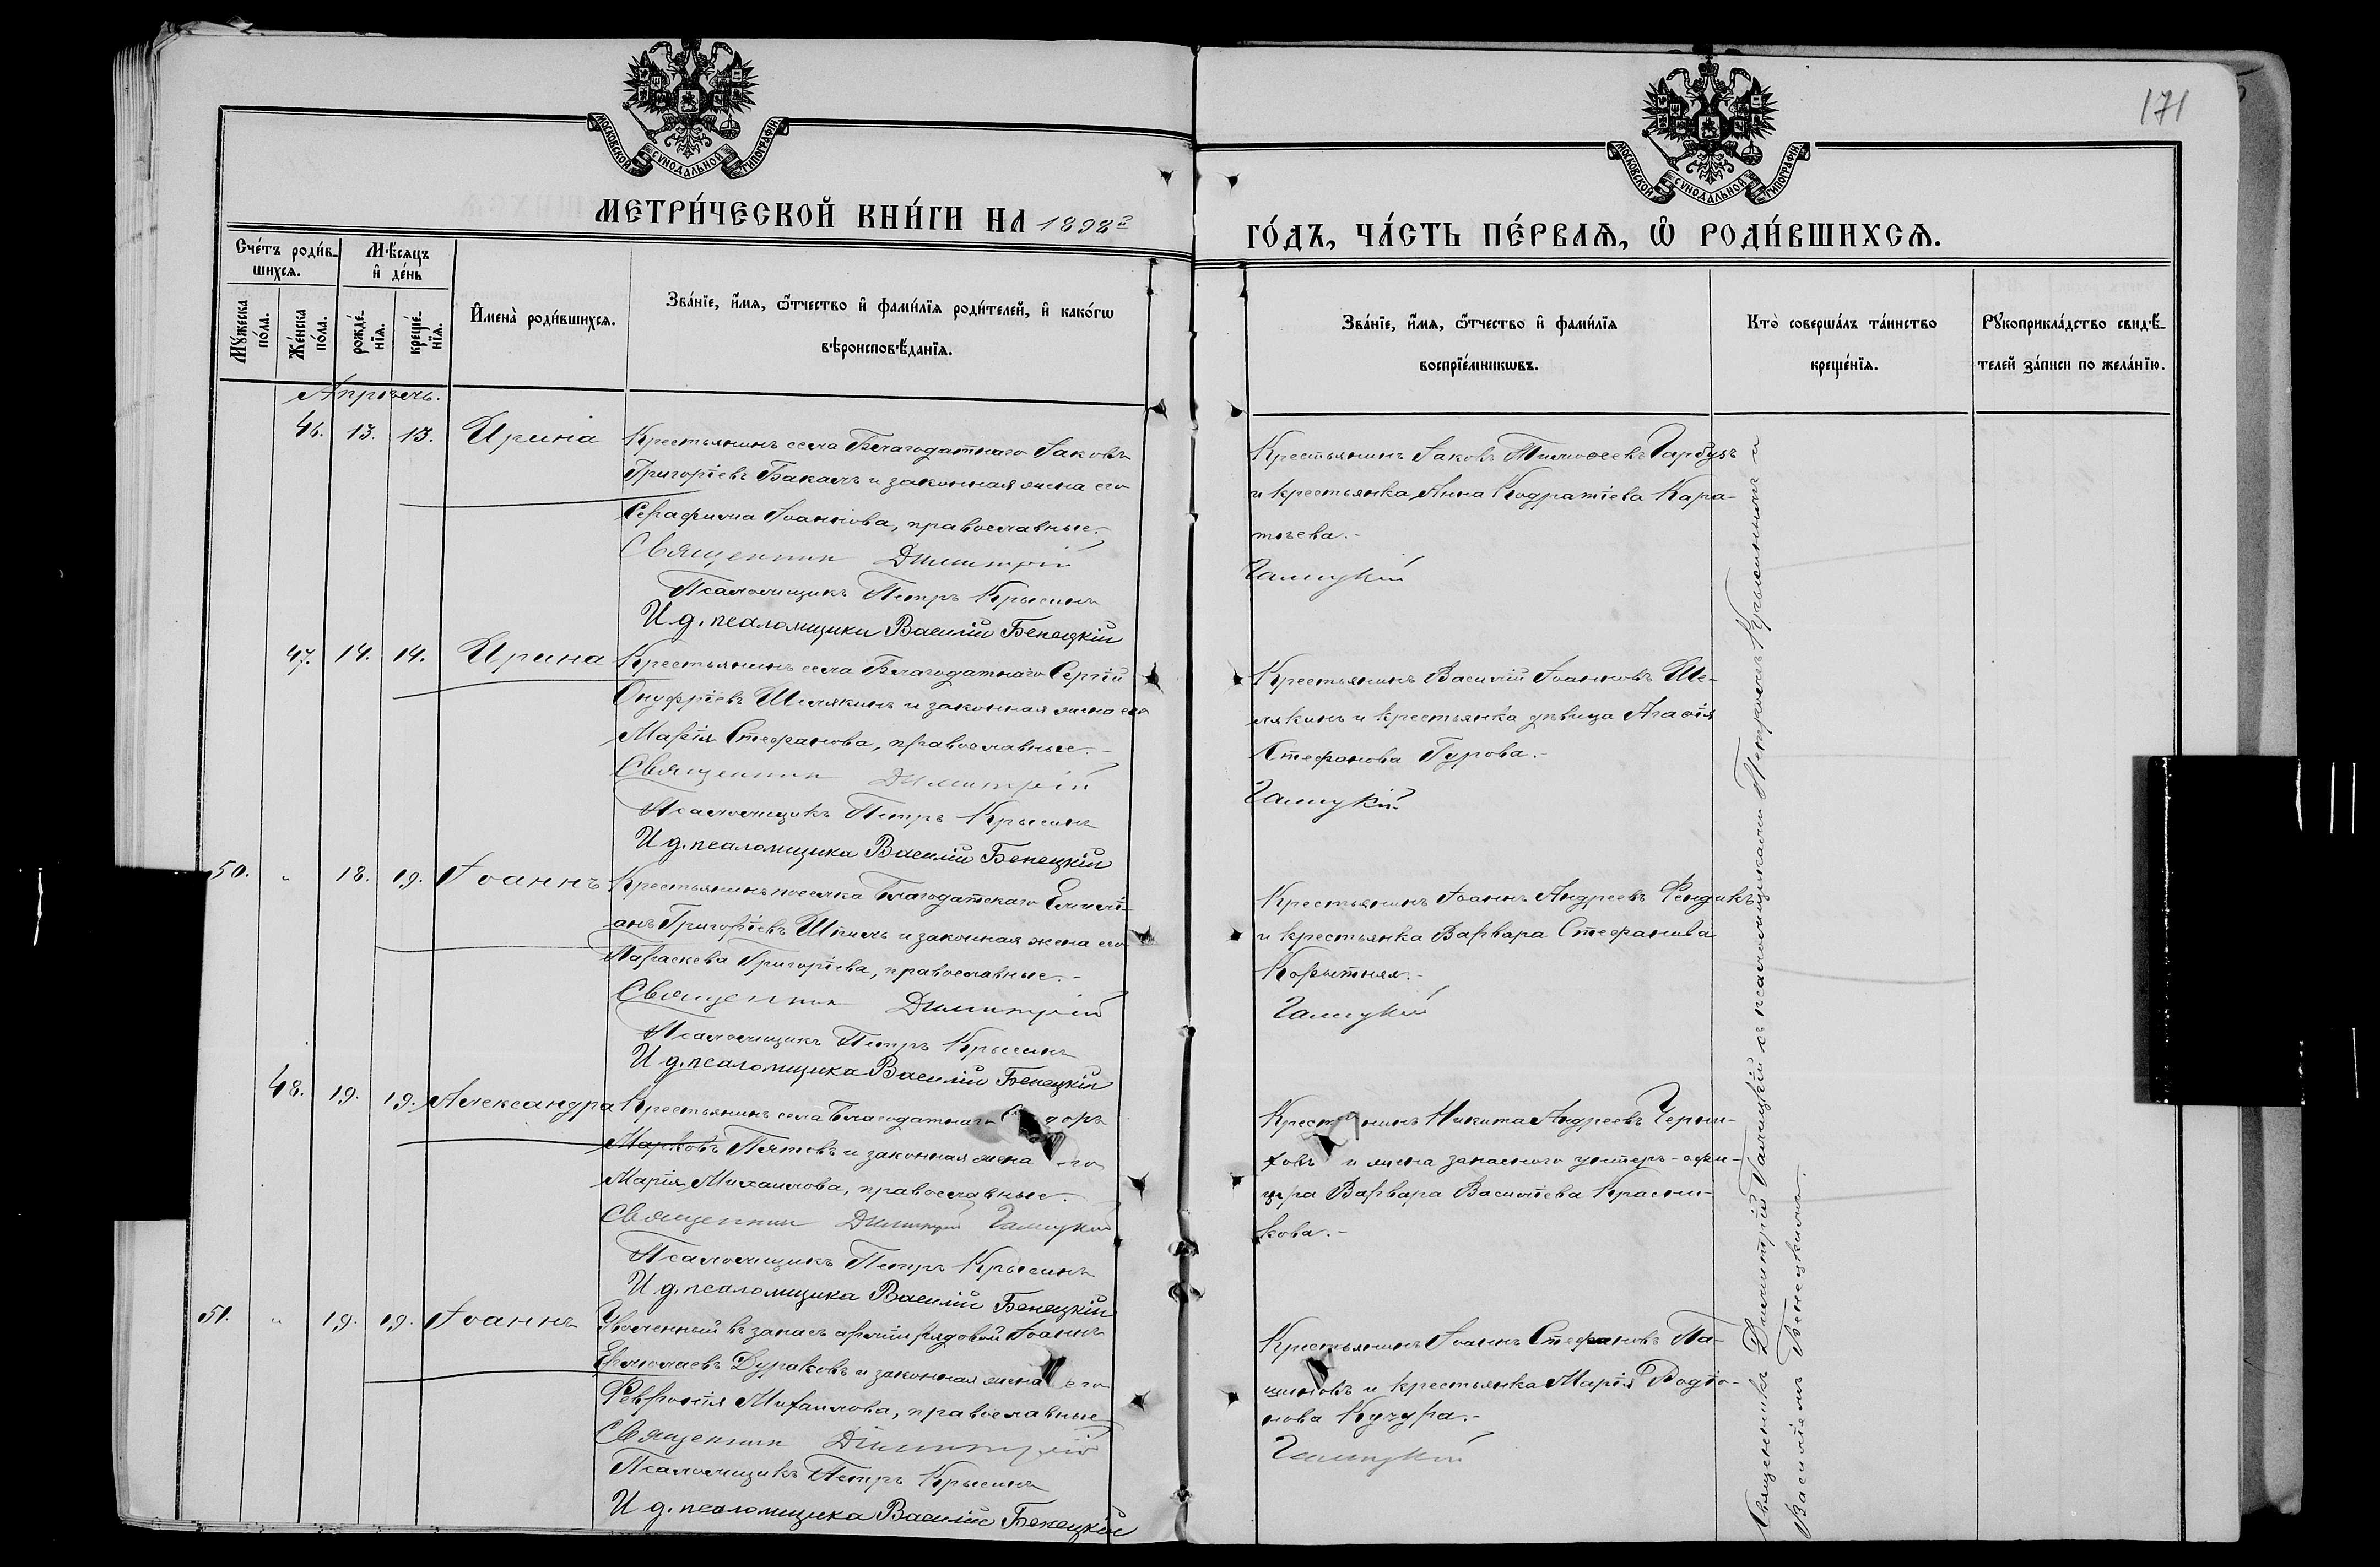 171
МОСКОВСКОЙ СѴНОДАЛЬНОЙ ТИПОГРАФІИ
МОСКОВСКОЙ СѴНОДАЛЬНОЙ ТИПОГРАФІИ
МЕТРИ́ЧЕСКОЙ КНИ́ГИ НА 1898й
ГО́ДЪ, ЧА́СТЬ ПЕ́РВАѦ, Ѡ҆ РОДИ́ВШИХСѦ.
Сче́тъ роди́в-
шихсѧ.
Мѣ́сѧцъ
и҆ де́нь
Мꙋ́жеска
по́ла.
Же́нска
по́ла.
рожде́-
нїѧ.
креще́-
нїѧ.
И҆мена̀ роди́вшихсѧ.
Зва́нїе, и҆́мѧ, ѻ҆́тчество и҆ фами́лїѧ роди́телей, и҆ како́гѡ
вѣроисповѣ́данїѧ.
Зва́нїе, и҆́мѧ, ѻ҆́тчество и҆ фами́лїѧ
воспрїе́мникѡвъ.
Кто̀ соверша́лъ та́инство
креще́нїѧ.
Рꙋкоприкла́дство свидѣ́-
телей за́писи по жела́нїю.
Апрѣль.
46. 13. 13. Ирина
Крестьянинъ села Благодатнаго Іаковъ
Григоріевъ Бакаль и законная жена его
Серафима Іоаннова, православные.-
Священник Димитрій
Псаломщикъ Петръ Крысинъ
И. д. псаломщика Василій Бенецкій
Крестьянинъ Іаковъ Тимоѳеевъ Гарбузъ
и крестьянка Анна Кодратіева Кара-
тѣева.-
Галицкій
47. 14. 14. Ирина
Крестьянинъ села Благодатнаго Сергій
Онуфріевъ Шемякинъ и законная жена его
Марія Стефанова, православные.-
Священник Димитрій
Псаломщикъ Петръ Крысинъ
И д. псаломщика Василій Бенецкій
Крестьянинъ Василій Іоанновъ Ше-
мякинъ и крестьянка дѣвица Агаѳія
Стефанова Гурова.-
Галицкій
50. " 18. 19. Іоаннъ
Крестьянинъ поселка Благодатскаго Емилі-
анъ Григоріевъ Шпиль и законная жена его
Параскева Григоріева, православные.-
Священник Димитрій
Псаломщикъ Петръ Крысинъ
И д. псаломщика Василій Бенецкій
Крестьянинъ Іоаннъ Андреевъ Фендикъ
и крестьянка Варвара Стефанова
Корытняя.-
Галицкій
48. 19. 19. Александра
Крестьянинъ села Благодатнаго
Марковъ Пятовъ и законная жена его
Марія Михаилова, православные.
Священник Димитрій Галицкій
Псаломщикъ Петръ Крысинъ
И д. псаломщика Василій Бенецкій
Крестьянинъ Никита Андреевъ Черни-
ховъ и жена запаснаго унтеръ-офи-
цера Варвара Василіева Красни-
кова.-
51. " 19. 19. Іоаннъ
Уволенный въ запасъ арміи рядовой Іоаннъ
Ермолаевъ Дураковъ и законная жена его
Февронія Михаилова, православные
Священник Димитрій
Псаломщикъ Петръ Крысинъ
И д. псаломщика Василій Бенецкій
Крестьянинъ Іоаннъ Стефановъ Па-
шиновъ и крестьянка Марія Родіо-
нова Кучура.-
Галицкій
Священникъ Димитрій Галицкій съ псаломщиками Петромъ Крысинымъ и
Василіемъ Бенецкимъ.